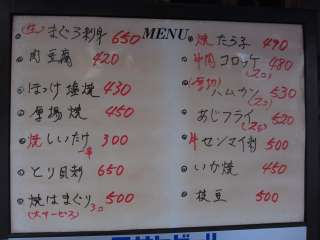 MENU
(生)まぐろ刺身 650
肉豆腐 420
ほっけ塩焼 430
厚揚焼 450
焼しいたけ 300
とり刺 650
焼はまぐり 500
(大サービス) 3コ
焼たら子 490
牛肉コロッケ 480
(2コ)
(厚切)ハムカツ 530
(2コ)
あじフライ 520
(2コ)
牛センマイ刺 500
いか焼 450
枝豆 500